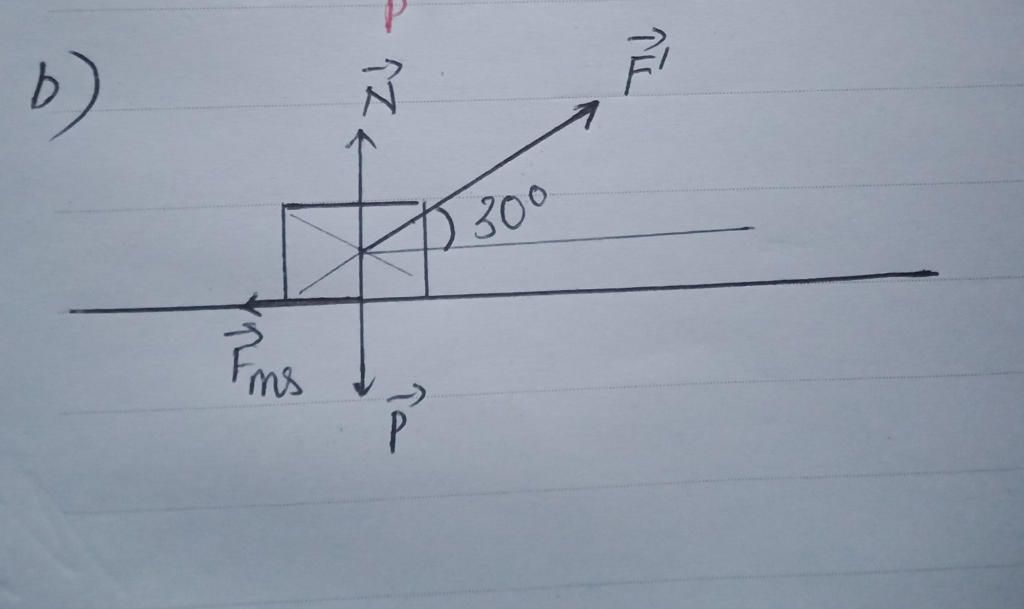 P
b)
N⃗
F⃗'
30°
F⃗ms
P⃗